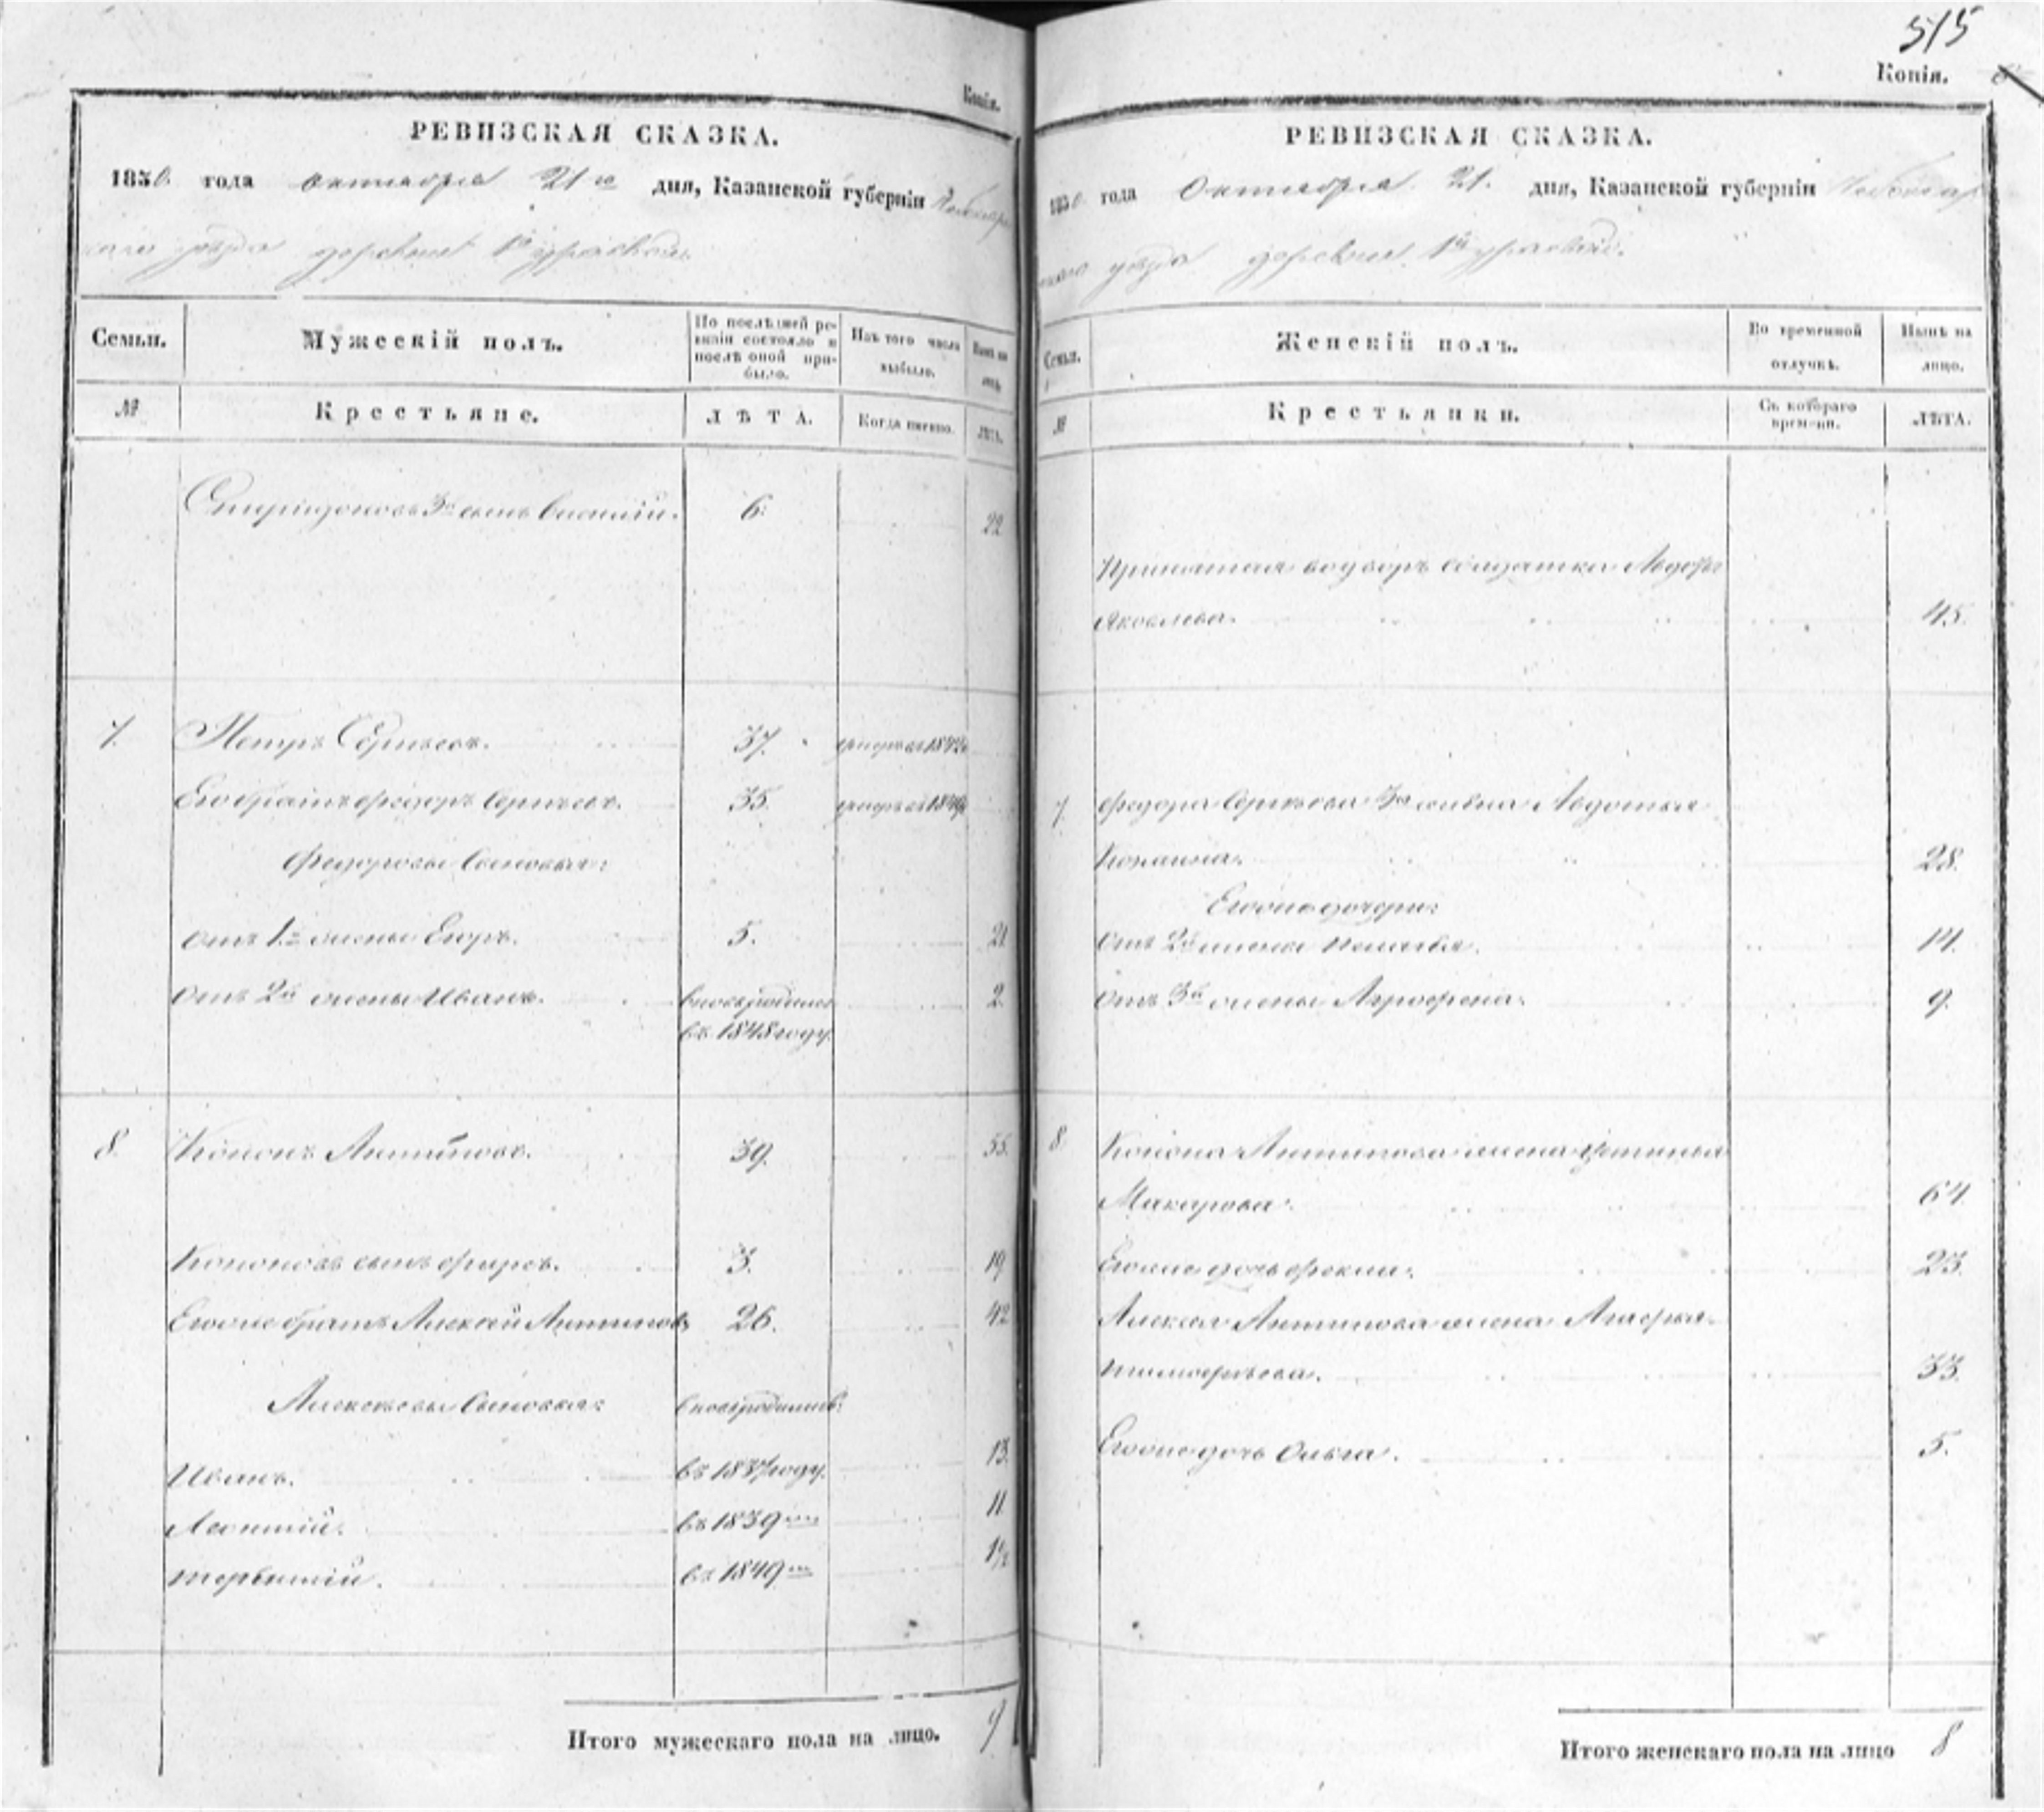 Копія.
РЕВИЗСКАЯ СКАЗКА.
1850 года октября 21го дня, Казанской губерніи
уѣзда деревни
Семьи.
Мужескій полъ.
По послѣдней ре-
визіи состояло и
послѣ оной при-
было.
Изъ того числа
выбыло.
Нынѣ на
лицо.
№
Крестьяне.
ЛѢТА.
Когда именно.
ЛѢТА.
Спиридоновъ 3й сынъ Василій. 6. 22
7. Петръ 37.
Его братъ Федоръ 35.
Федоровы сыновья:
отъ 1й жены Егоръ. 5. 21
отъ 2й жены Иванъ. вновь родился 2.
въ 1848 году.
8. Кононъ Антиповъ. 39. 55.
Кононовъ сынъ 3. 19
Его же братъ Алексѣй Антиповъ 26. 42
Алексѣевы сыновья: вновь родились:
Иванъ. въ 1837 году. 13.
Леонтій. въ 1839 11
въ 1849 1½
Итого мужескаго пола на лицо. 9
515
Копія.
РЕВИЗСКАЯ СКАЗКА.
1850 года Октября 21. дня, Казанской губерніи
уѣзда деревни
Семьи.
Женскій полъ.
Во временной
отлучкѣ.
Нынѣ на
лицо.
№
Крестьянки.
Съ котораго
времени.
ЛѢТА.
Принятая во дворъ солдатка
Яковлева. 45.
7. Федора 3я жена Авдотья
28.
Его же дочери:
отъ 2й жены 14.
отъ 3й жены Агрофена. 9.
8 Конона Антипова жена Устинья
Макарова. 64.
Его же дочь Фекла. 23.
Алексѣя Антипова жена Агафья
Тимофѣева. 33.
Его же дочь Ольга. 5.
Итого женскаго пола на лицо 8